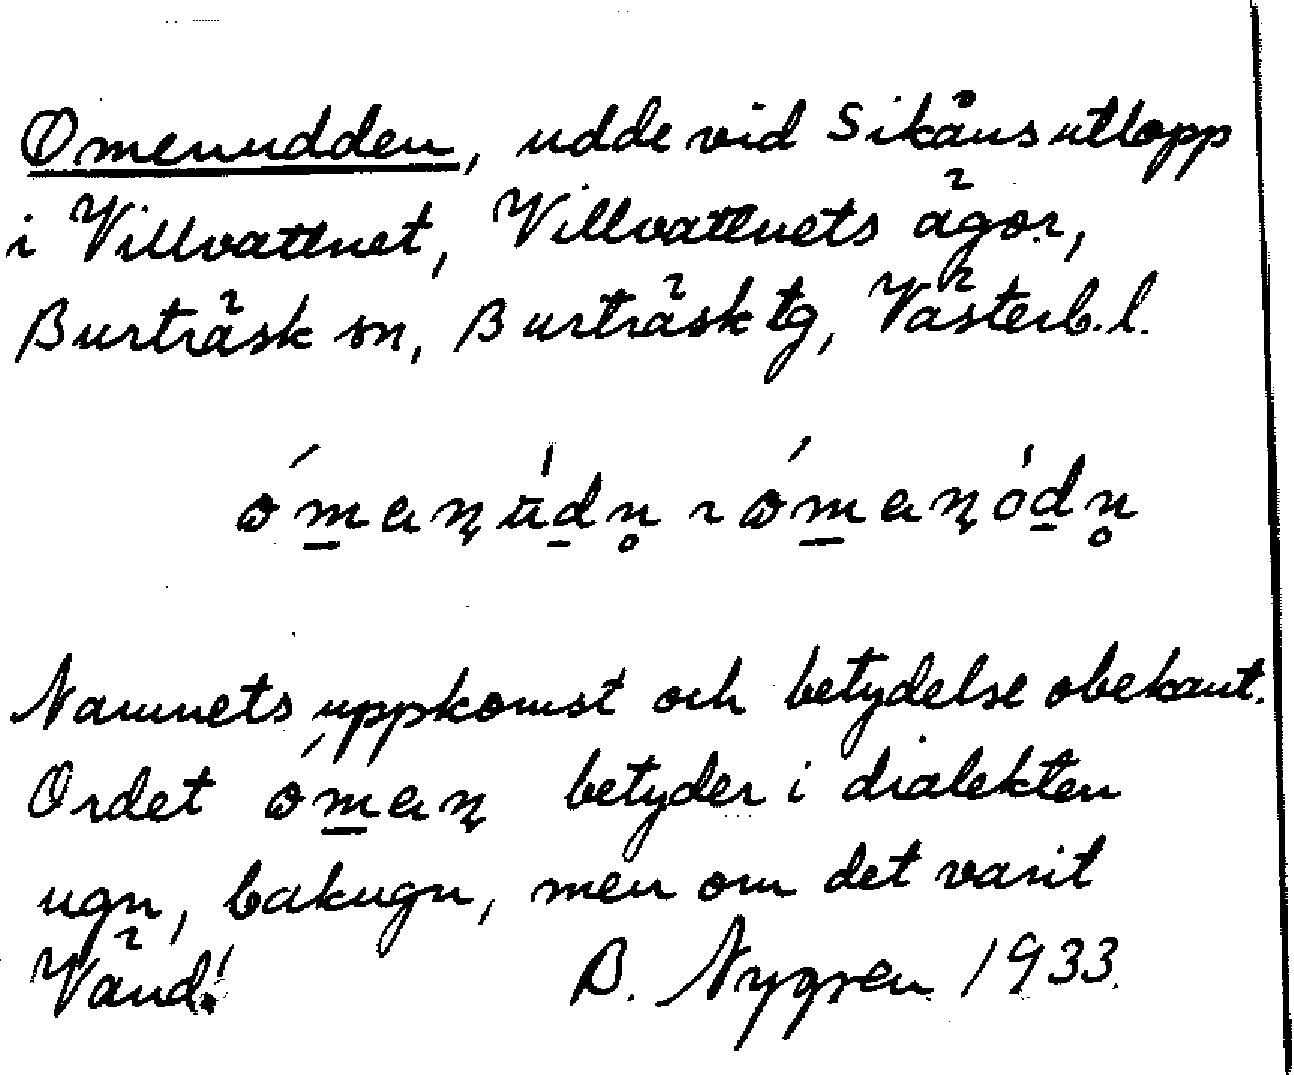 Omenudden, udde vid Sikåns utlopp
i Villvattnet, Villvattnets ägor,
Burträsk sn, Burträsk tg, Västerb. l.
Namnets uppkomst och betydelse obekant.
Ordet betyder i dialekten
ugn, bakugn, men om det varit
Vänd! B. Nygren 1933.